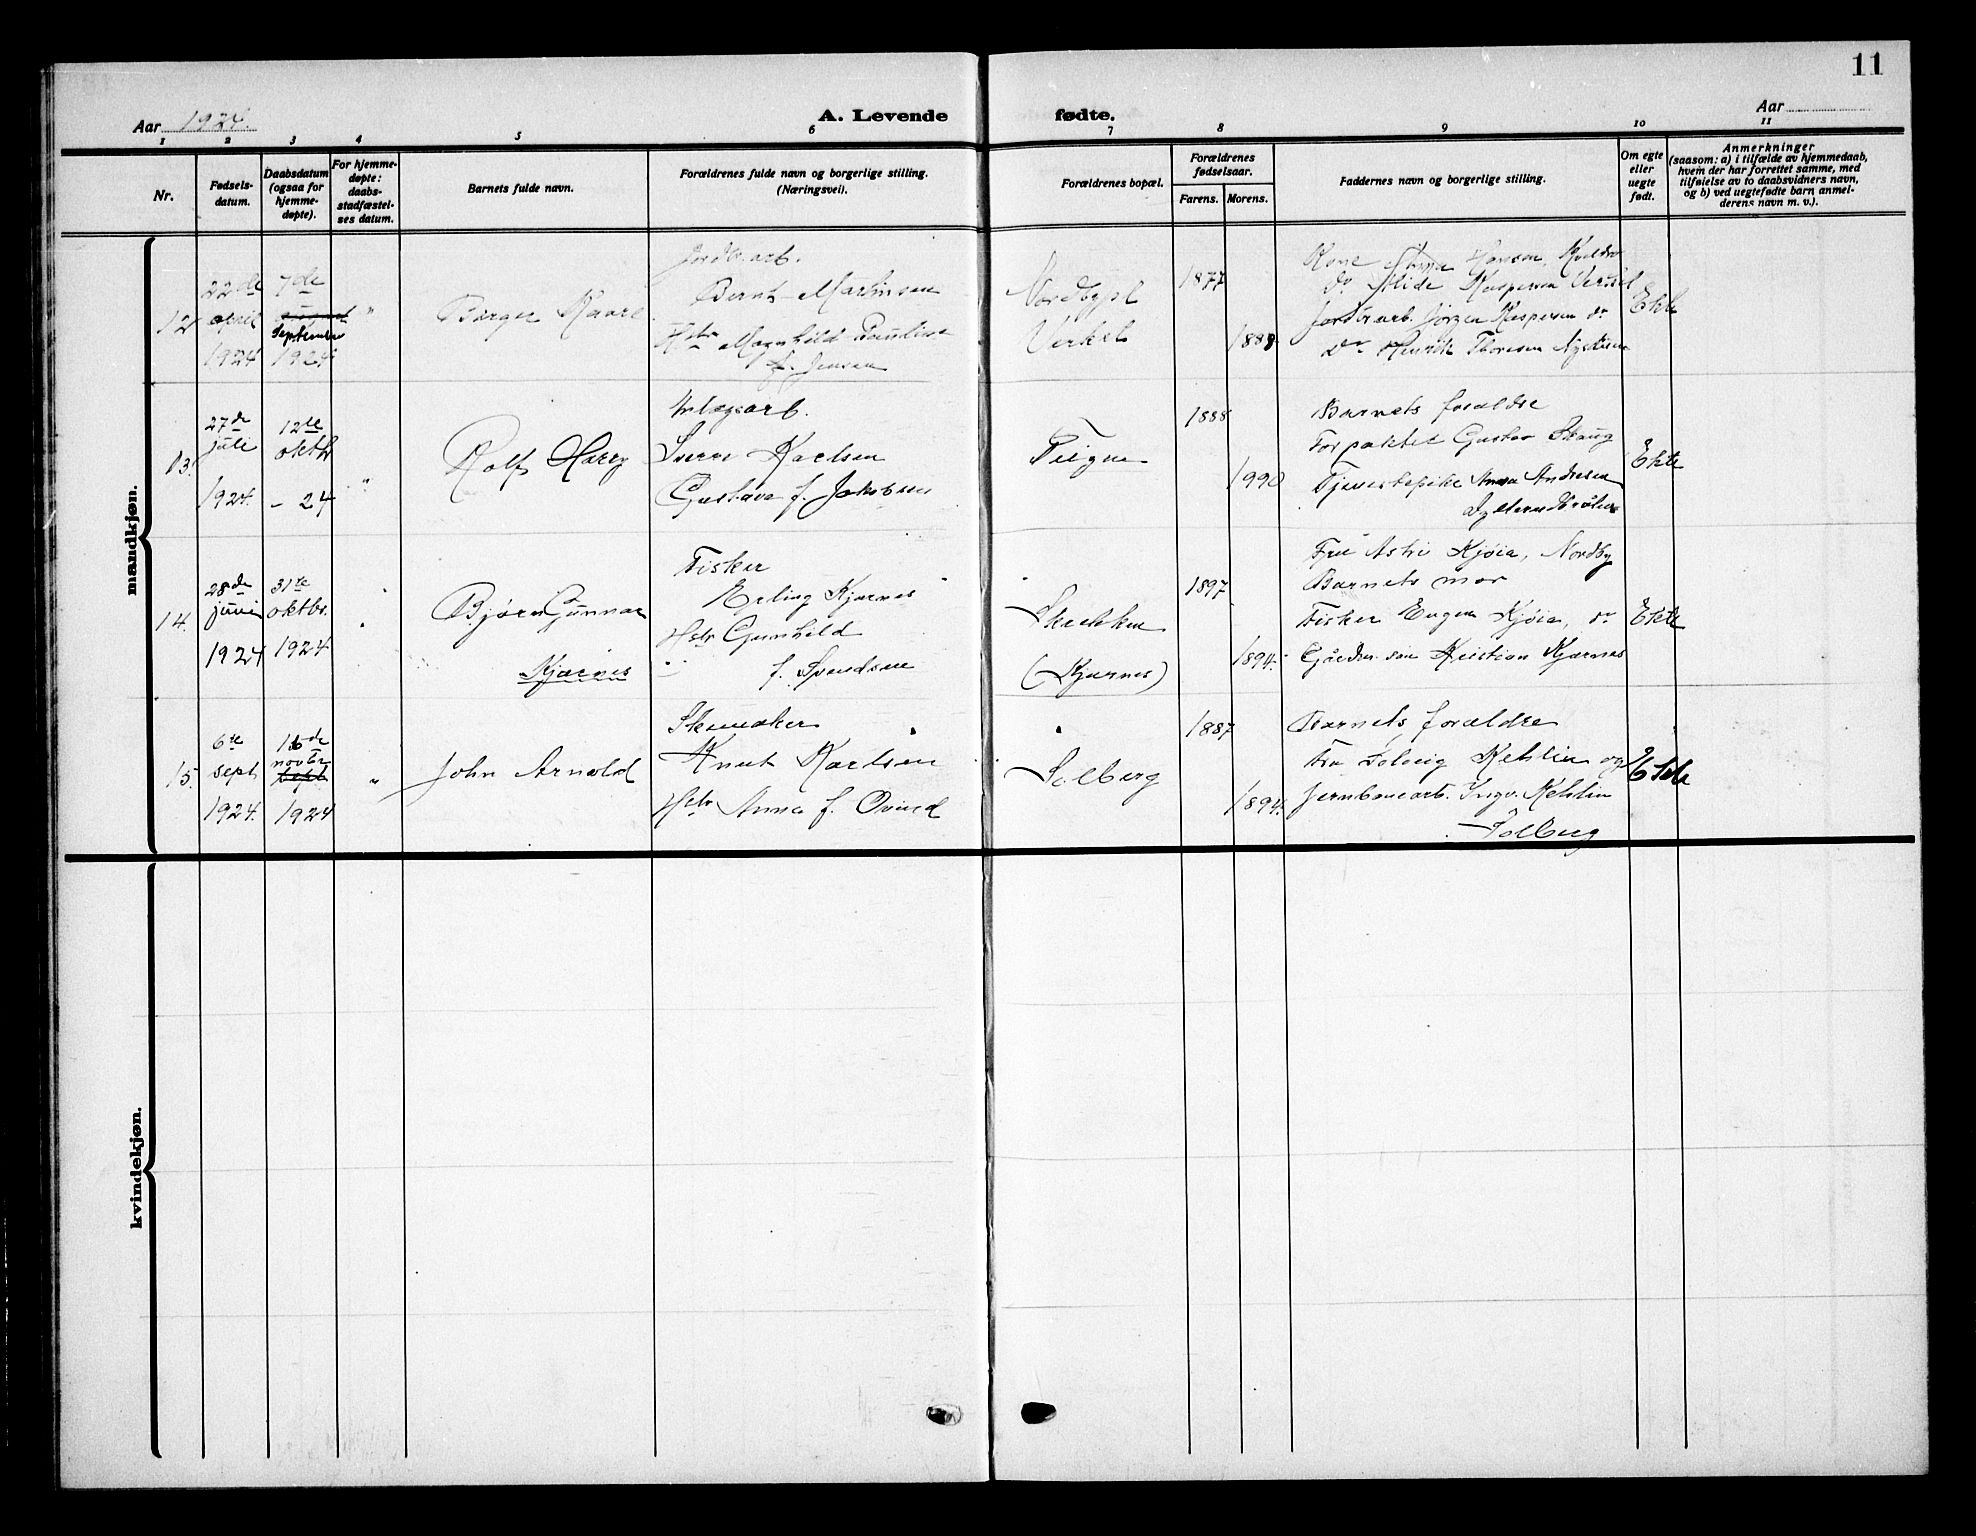 11
Aar 1924.
A. Levende
fødte.
Aar
1 2 3 4 5 6 7 8 9 10 11
Nr.
Fødsels-
datum.
Daabsdatum
(ogsaa for
hjemme-
døpte).
For hjemme-
døpte:
daabs-
stadfæstel-
ses datum.
Barnets fulde navn.
Forældrenes fulde navn og borgerlige stilling.
(Næringsvei).
Forældrenes bopæl.
Forældrenes
fødselsaar.
Farens. Morens.
Faddernes navn og borgerlige stilling.
Om egte
eller
uegte
født.
Anmerkninger
(saasom: a) i tilfælde av hjemmedaab,
hvem der har forrettet samme, med
tilføielse av to daabsvidners navn,
og b) ved uegtefødte barn anmel-
derens navn m. v.).
mandkjøn.
12
22de
april
1924
7de
september
1924
"
Birger Kaare
Jordbr.arb.
Bernt Martinsen
Hstr Magnhild Pauline
f. Jensen
Nordbypl
Verkel
1877
1888
Kone Hansen,
do Kaspersen
Jordbrarb. Jørgen Kaspersen do
do Henrik Thoresen
Ekte
13.
27de
juli
1924.
12te
oktb
- 24
"
Rolf Harry
Anlægsarb.
Sverre Karlsen
Gustava f. Jakobsen
1888
1990
Barnets forældre
Forpakter Gustav Skaug
Tjenestepike Anna Andresen
Ekte
14.
28de
juni
1924
31te
oktbr.
1924
Bjørn Gunnar
Kjærnes
Fisker
Erling Kjærnes
Hstr Gunhild
f. Svendsen
(Kjærnes)
1897
1894
Fru Astri Kjøia, Nordby
Barnets mor
Fisker Eugen Kjøia, do
Gårdbr. søn Kristian Kjærnes
Ekte
15.
6te
sept
1924.
16de
novbr
sept
1924
"
John Arnold
Skomaker
Knut Karlsen
Hstr Anna f. Ovind
Solberg
1887
1894.
Barnets forældre
Fru Solveig og
Jernbanearb. Ingv.
Solberg
Ekte
kvindekjøn.